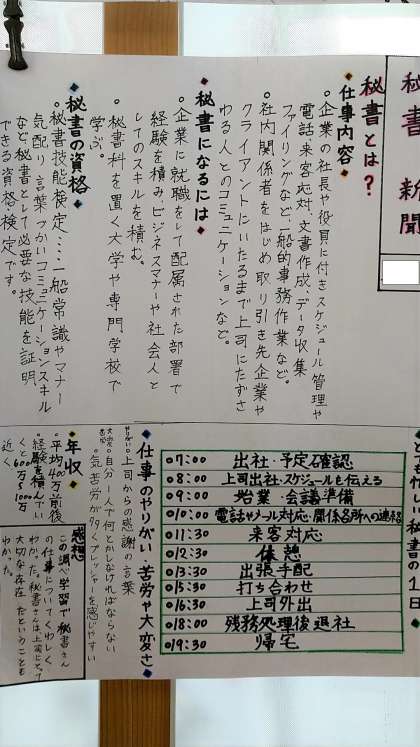 秘書新聞
秘書とは?
◆仕事内容◆
○企業の社長や役員に付きスケジュール管理や
電話・来客応対、文書作成、データ収集
ファイリングなど、一般的事務作業など。
○社内関係者をはじめ取り引き先企業や
クライアントにいたるまで上司にたずさ
わる人とのコミュニケーションなど。
◆秘書になるには◆
○企業に就職をして配属された部署で
経験を積み、ビジネスマナーや社会人と
してのスキルを積む。
・秘書科を置く大学や専門学校で
学ぶ。
◆秘書の資格◆
○秘書技能検定・・・一般常識やマナー
気配り、言葉づかい、コミュニケーションスキル
など秘書として必要な技能を証明
できる資格検定です。
とても忙しい秘書の1日
○7:00 出社・予定確認
○8:00 上司出社・スケジュールを伝える
○9:00 始業・会議準備
○10:00 電話やメール対応・関係各所への連絡
○11:30 来客対応
○12:30 休憩
○13:30 出張手配
○15:30 打ち合わせ
○16:30 上司外出
○18:00 残務処理後退社
○19:30 帰宅
◆仕事のやりがい・苦労や大変さ◆
やりがい○上司からの感謝の言葉
大変○自分一人で何とかしなければならない
○気苦労が多くプレッシャーを感じやすい
◆年収◆
○平均400万前後
○経験を積んでい
くと600万〜1000万
近く
感想
この調べ学習で秘書さん
の仕事についてくわしく
わかった。秘書さんは上司にとって
大切な存在だということも
わかった。